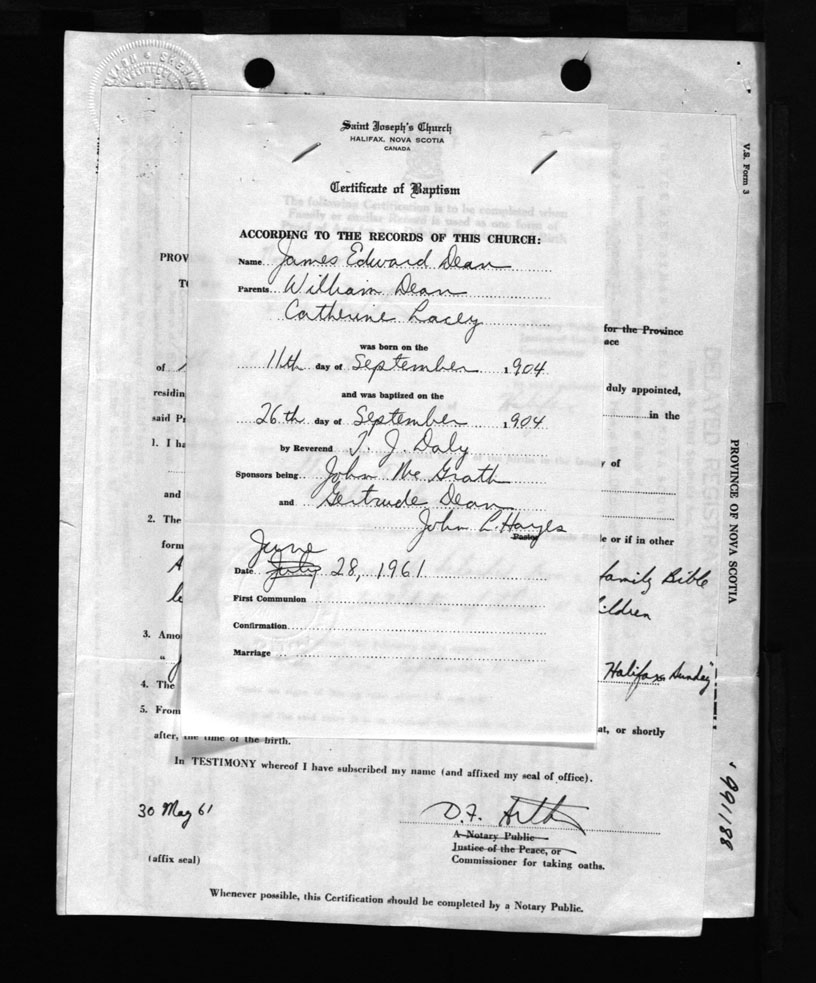 Saint Joseph's Church
HALIFAX, NOVA SCOTIA
CANADA
Certificate of Baptism
ACCORDING TO THE RECORDS OF THIS CHURCH:
Name James Edward Dean
Parents William Dean
Catherine Lacey
was born on the
11th day of September 1904
and was baptized on the
26th day of September 1904
by Reverend T. J. Daly
Sponsors being John McGrath
and Gertrude Dean
John L. Hayes
Pastor
June
Date July 28, 1961
First Communion
Confirmation
Marriage
PROV
TO
for the Province
ace
of
residin
duly appointed,
said Pr
in the
1. I ha
y of
and
2. The
le or if in other
form
family Bible
children
3. Amo
Halifax Sunday
4. The
5. From
at, or shortly
after, the time of the birth.
In TESTIMONY whereof I have subscribed my name (and affixed my seal of office).
30 May 61
D.F.
A Notary Public
Justice of the Peace, or
Commissioner for taking oaths.
(affix seal)
Whenever possible, this Certification should be completed by a Notary Public.
V.S. Form 3
PROVINCE OF NOVA SCOTIA
991188